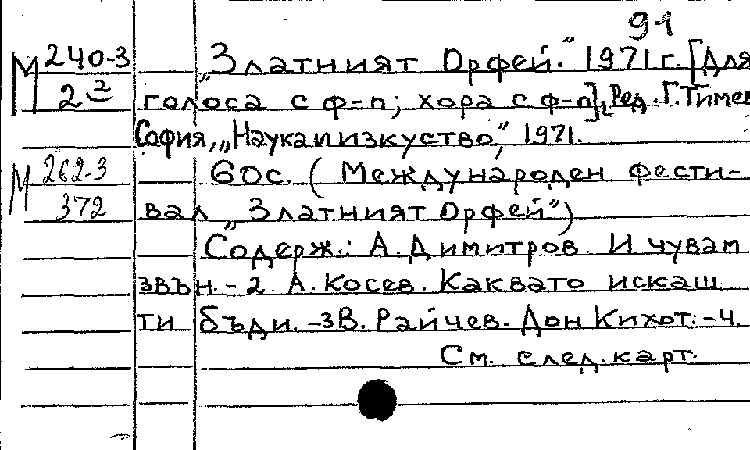 91
М 240-3 „Златният Орфей.“ 1971 г. [Для
2 2 голоса с ф-п; хора с ф-п], Ред. Г. Тимев
София, „Наука и изкуство“, 1971.
М 262-3 60с. (Международен фести-
372 вал „Златният Орфей“)
Содерж.: А. Димитров. И чувам
звън. - 2 А. Косев. Каквато искаш
ти бъди. - 3 В. Райчев. Дон Кихот. - 4.
См. след. карт.